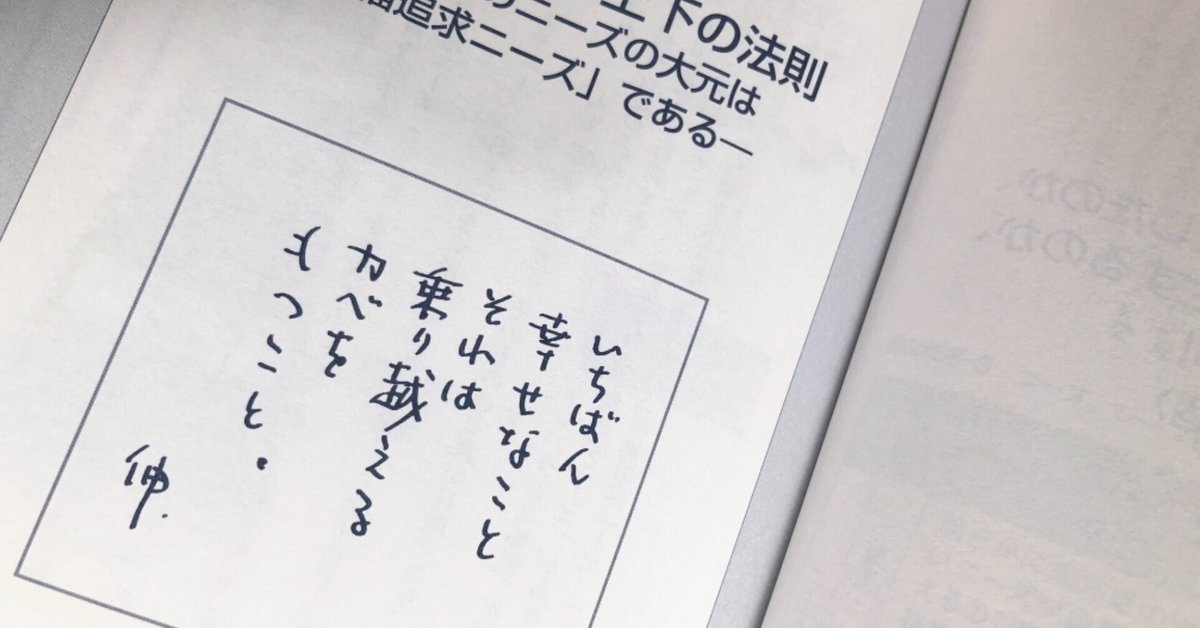 下の法則
ニーズの大元は
追求ニーズ」である―
いちばん
幸せなこと
それは
乗り越える
カベを
もつこと。
伸.